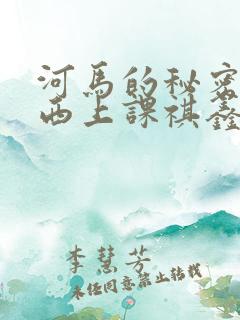 河馬的秘密
西上課祺鑫
李慧芳
未经同意禁止转载